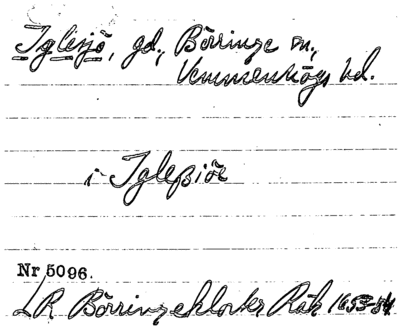 Iglesjö, gd., Börringe sn,
Vemmenhögs hd.
i Igleßiöe
Nr 5096.
LR Börringeklosters Räk 1653-54